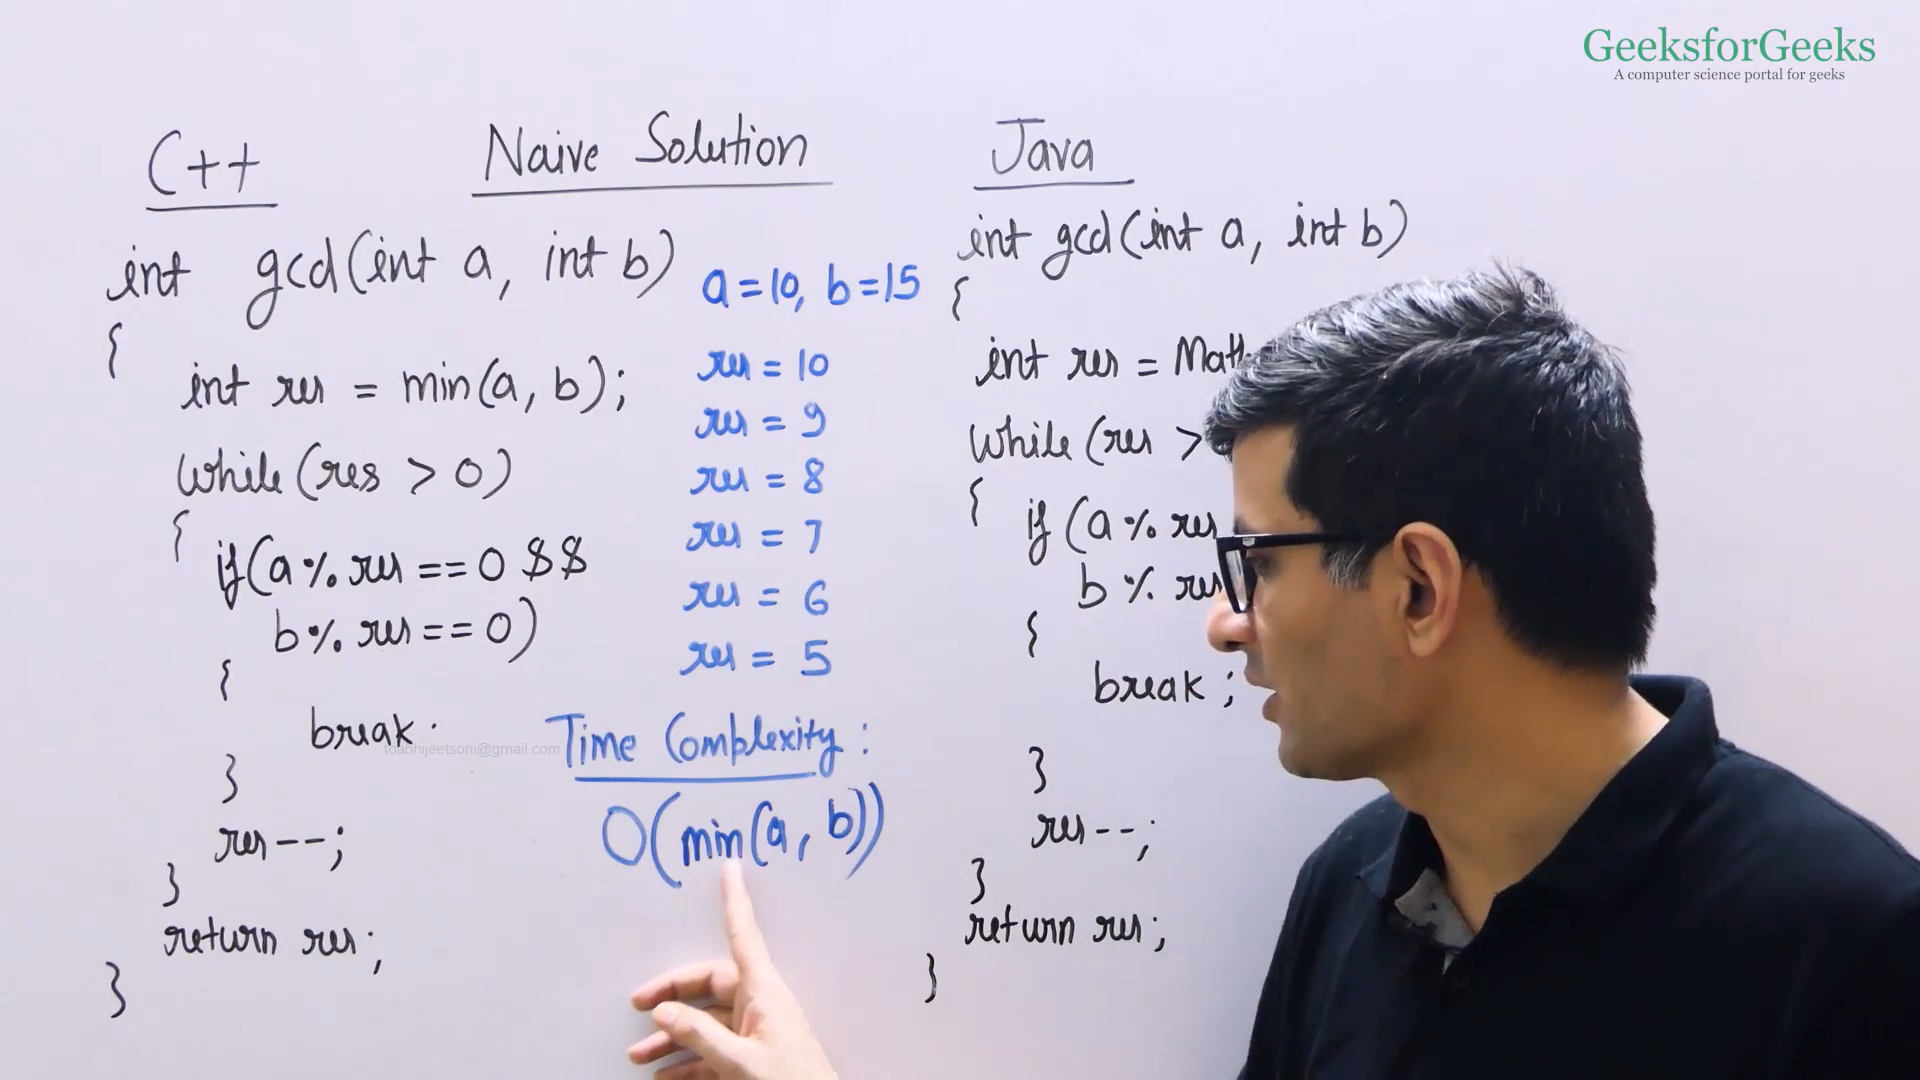 GeeksforGeeks
A computer science portal for geeks
Naive Solution
C++
int gcd(int a, int b)
{
int res = min(a, b);
while(res > 0)
{
if(a % res == 0 $$
b % res == 0)
{
break;
}
res--;
}
return res;
}
a=10, b=15
res = 10
res = 9
res = 8
res = 7
res = 6
res = 5
Time Complexity:
O(min(a, b))
toabhijeetsoni@gmail.com
Java
int gcd(int a, int b)
{
int res = Math
while(res >
{
if(a % res
b % res
{
break;
}
res--;
}
return res;
}